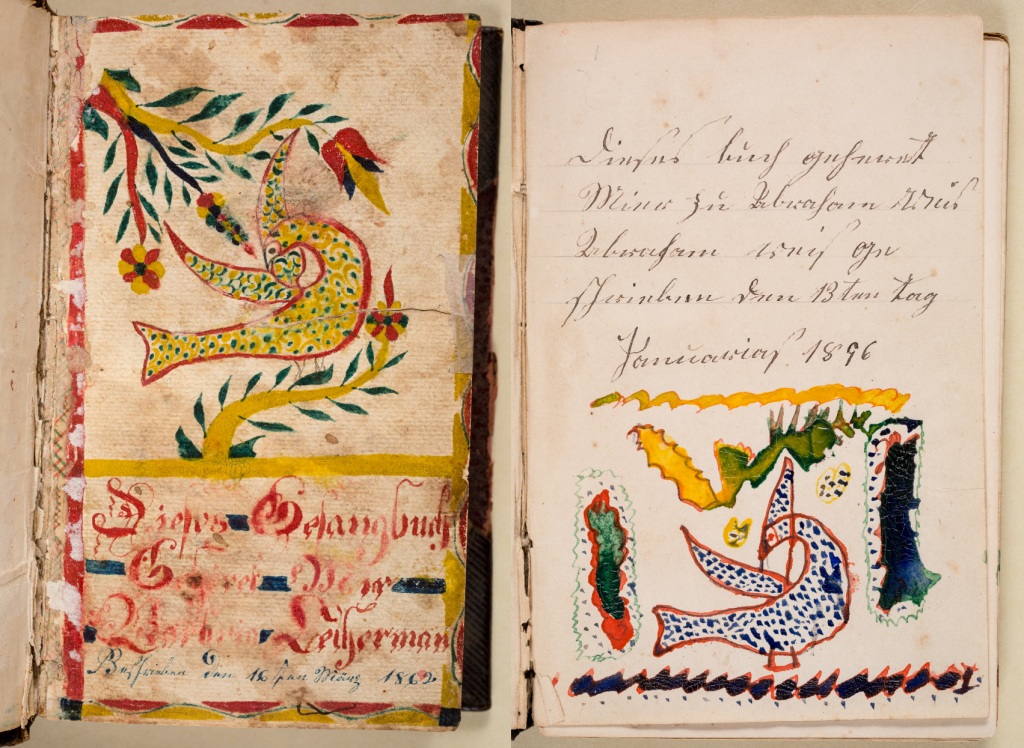 Dieses Gesangbuch
Gehöret Mir
Barbara Leitherman
Beschrieben den 16ten März 1862
Dieses buch geheret
Mier zu Abraham Weis
Abraham weis ge
schrieben den 13ten tag
Januarias 1896